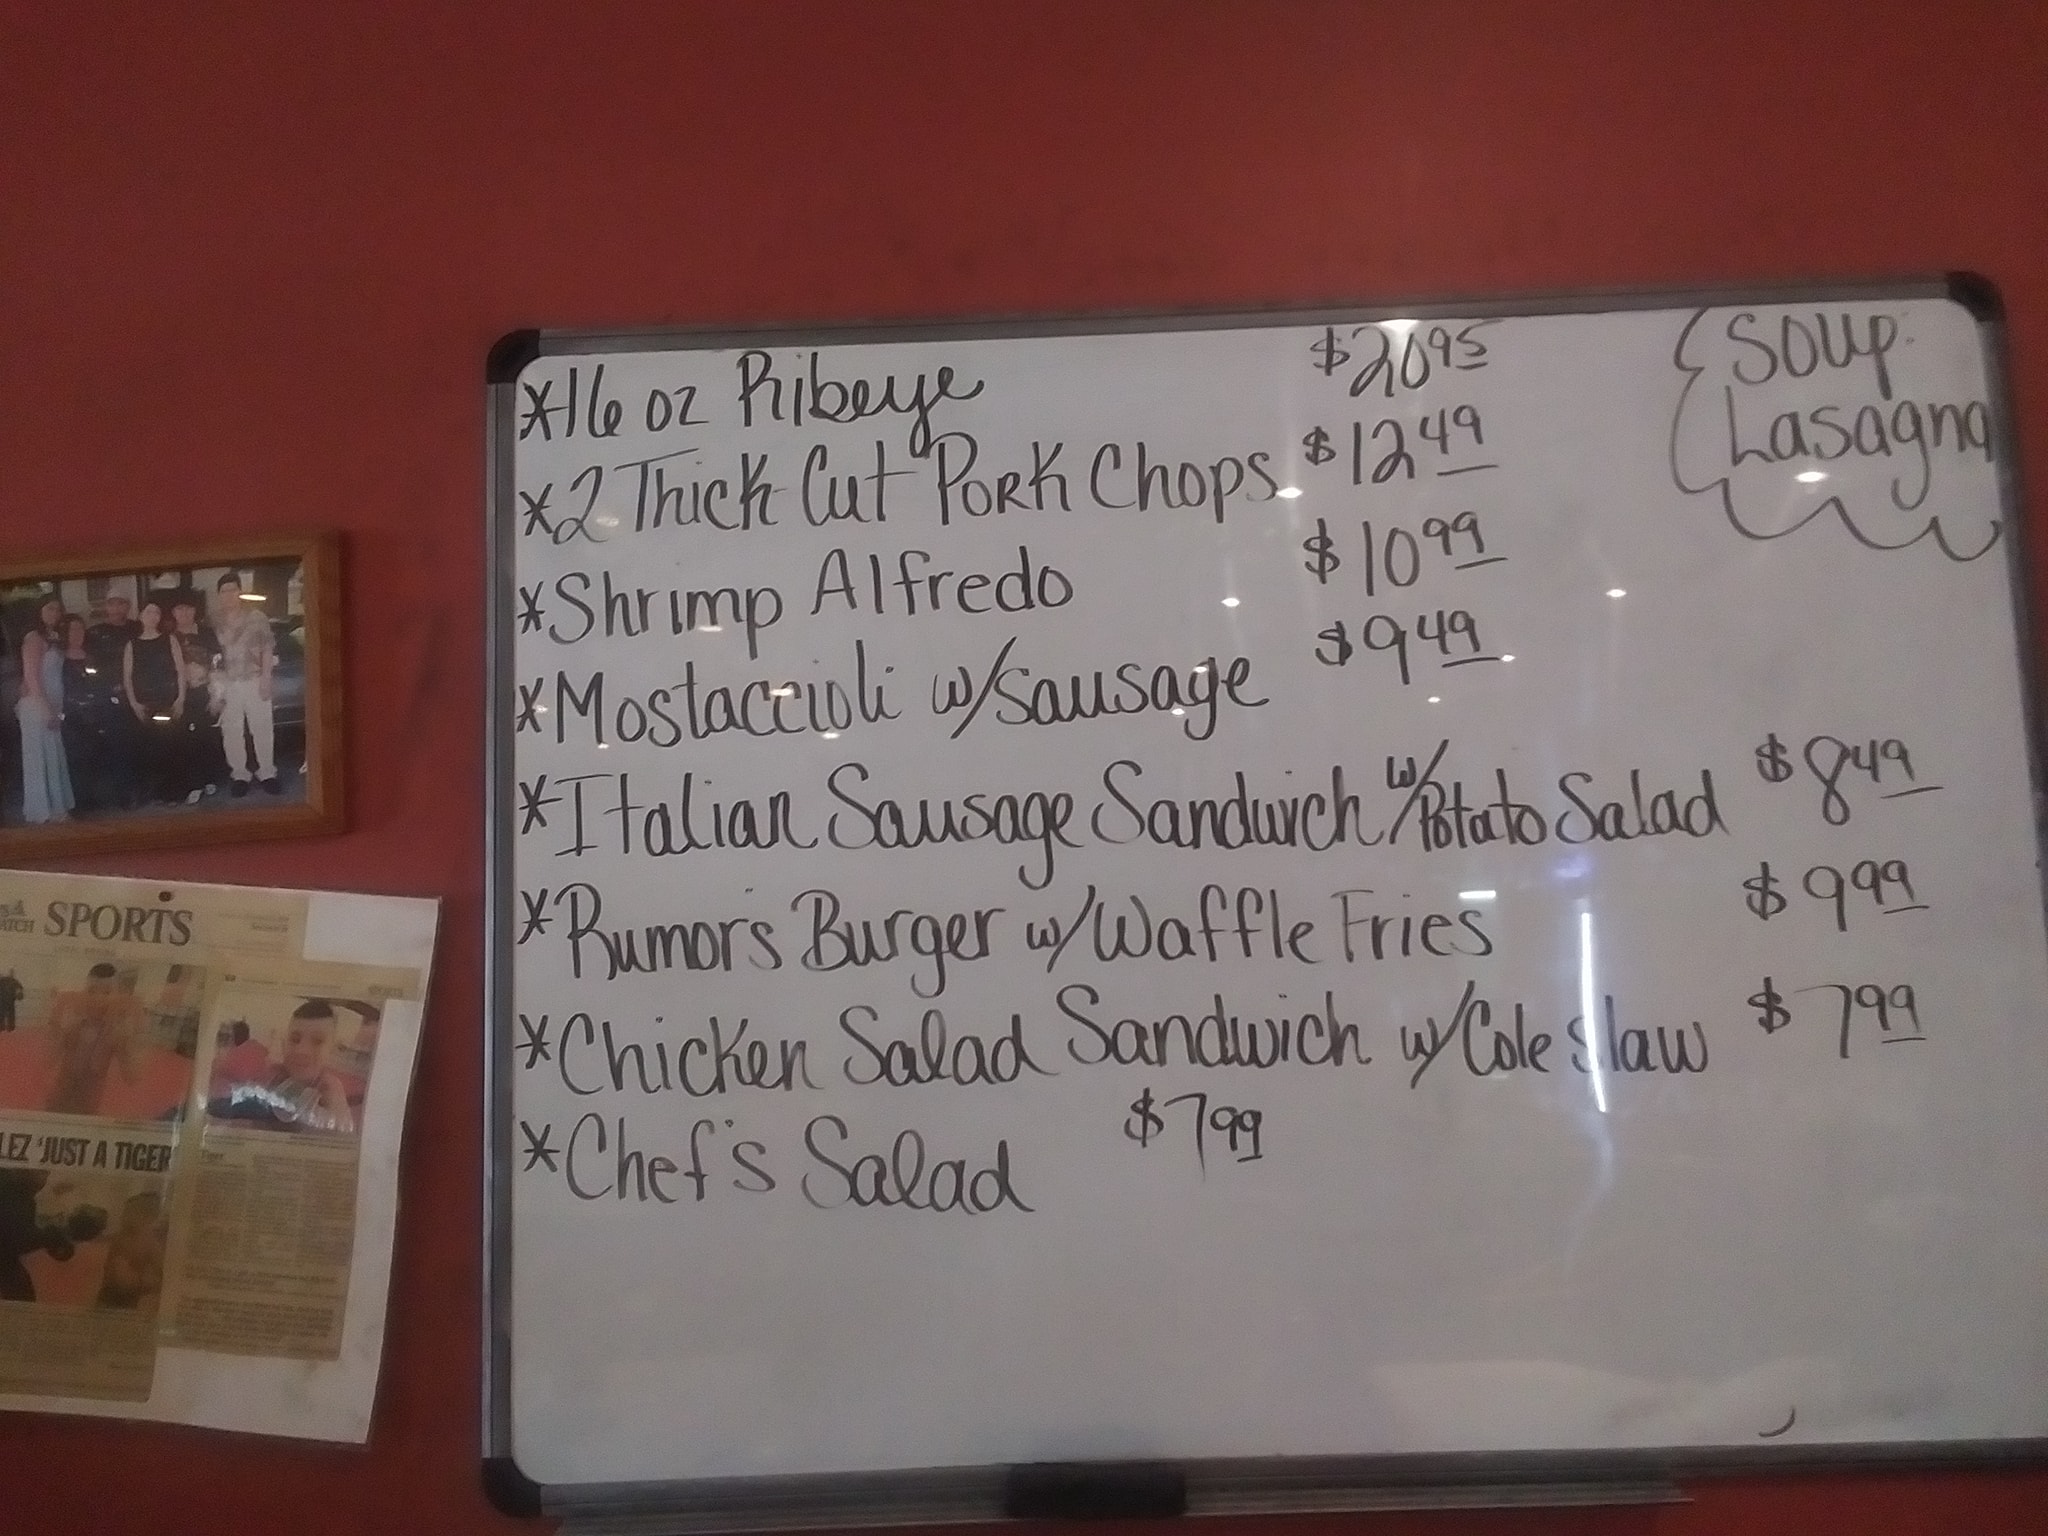 *16 oz Ribeye $20.95
*2 Thick Cut Pork Chops $12.49
*Shrimp Alfredo $10.99
*Mostaccioli w/Sausage $9.49
*Italian Sausage Sandwich w/Potato Salad $8.49
*Rumors Burger w/Waffle Fries $9.99
*Chicken Salad Sandwich w/Cole Slaw $7.99
*Chef's Salad $7.99
Soup
Lasagna
SPORTS
LEZ 'JUST A TIGER